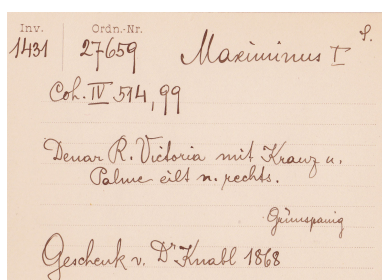 Inv. Ordn.-Nr.
1431 27659 Maximinus I S.
Coh. IV 514, 99
Denar R. Victoria mit Kranz u.
Palme eilt n. rechts.
Grünspanig
Geschenk v. Dr Knabl 1868